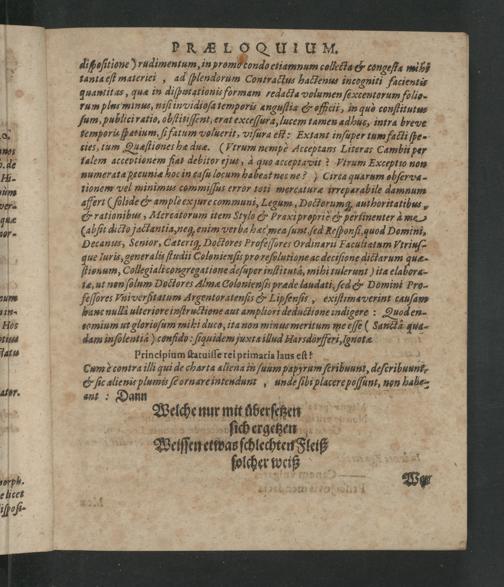 PRÆLOQUIUM.
dispositione) rudimentum, in promo condo etiamnum collecta & congesta mihi
tanta est materiei, ad splendorum Contractus hactenus incogniti facientis
quantitas, quæ in disputationis formam redacta volumen sexcentorum folio-
rum plus minus, nisi invidiosa temporis angustia & officii, in quò constitutus
sum, publici ratio, obstitissent, erat excessura, lucem tamen adhuc, intra breve
temporis spatium, si fatum voluerit, visura est: Extant insuper tum facti spe-
cies, tum Quæstiones hæ duæ. (Vtrum nempè Acceptans Literas Cambii per
talem acceptionem fiat debitor ejus, à quo acceptavit? Vtrum Exceptio non
numeratæ pecuniæ hoc in casu locum habeat nec ne?) Circa quarum observa-
tionem vel minimus commissus error toti mercaturæ irreparabile damnum
affert (solide & ample ex jure communi, Legum, Doctorumq, authoritatibus
& rationibus, Mercatorum item Stylo & Praxi propriè & pertinenter à me
(absit dicto jactantia, neq, enim verba hæc mea sunt, sed Responsi, quod Domini,
Decanus, Senior, Cæteriq, Doctores Professores Ordinarii Facultatum Vtrius-
que Iuris, generalis studii Coloniensis pro resolutione ac decisione dictarum quæ-
stionum, Collegiali congregatione desuper institutâ, mihi tulerunt) ita elabora-
tæ, ut non solum Doctores Almæ Coloniensis præde laudati, sed & Domini Pro-
fessores Vniversitatum Argentoratensis & Lipsensis, existimaverint causam
hanc nullâ ulteriore instructione aut ampliori deductione indigere: Quod en-
comium ut gloriosum mihi duco, ita non minus meritum me esse (Sanctâ qua-
dam insolentiâ) confido: siquidem juxta illud Harsdorfferi, Ignotæ
Principium statuisse rei primaria laus est?
Cum è contra illi qui de charta aliena in suum papyrum scribunt, describunt,
& sic alienis plumis se ornare intendunt, unde sibi placere possunt, non habe-
ant: Dann
Welche nur mit übersetzen
sich ergetzen
Weissen etwas schlechten Fleiß
solcher weiß